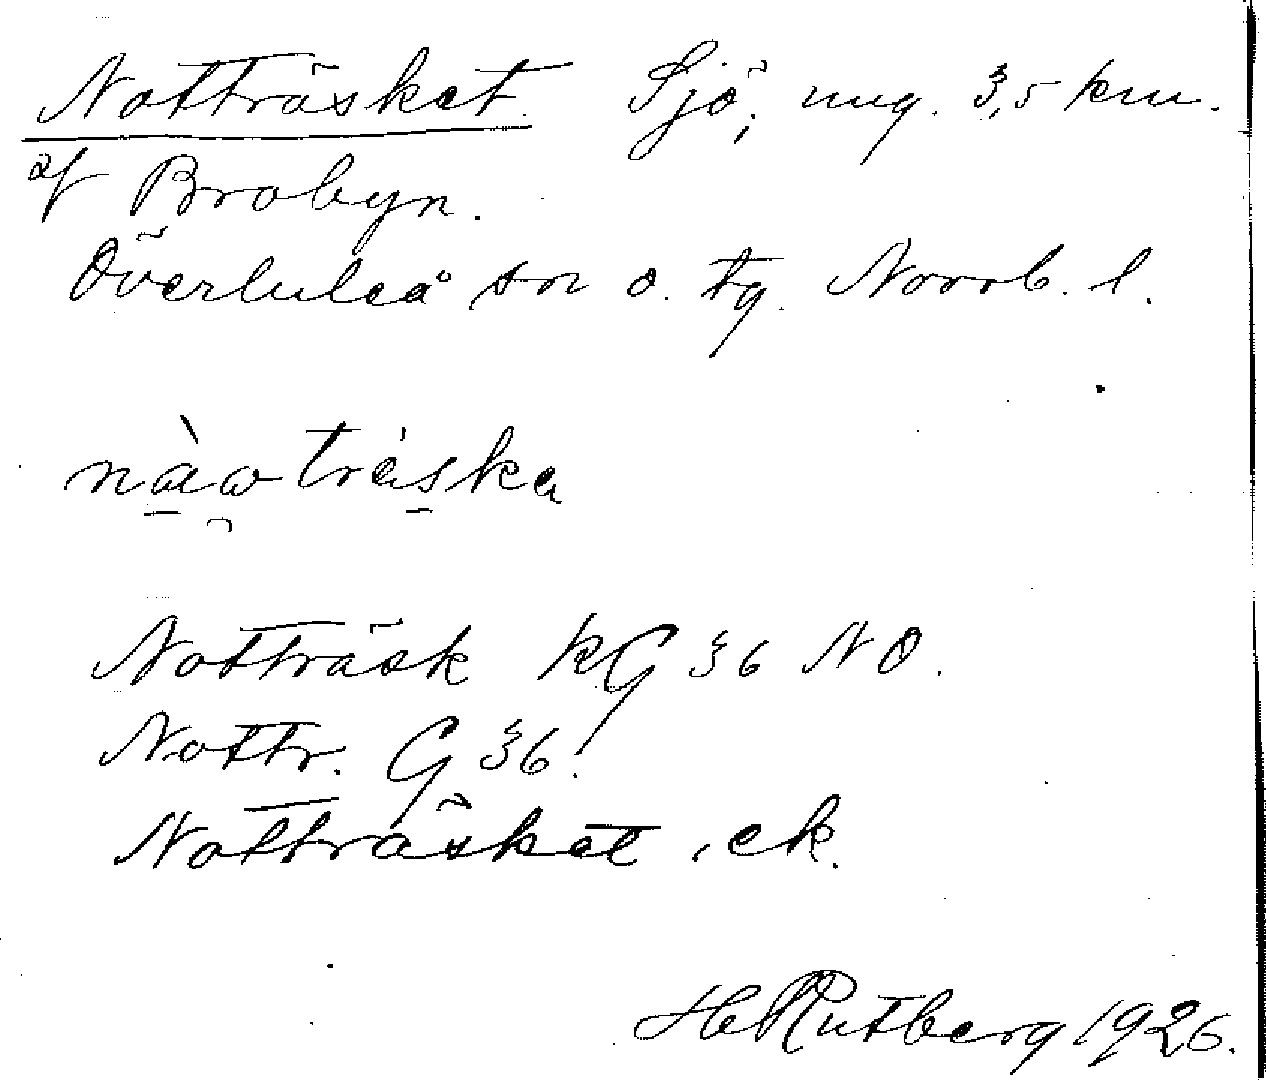 Notträsket. Sjö, ung. 3,5 km.
af Brobyn.
Överluleå sn o. tg. Norrb. l.
nàωtrȧska
Notträsk KG 36 NO.
Nottr. G 36.
Notträsket, ek.
H Rutberg 1926.